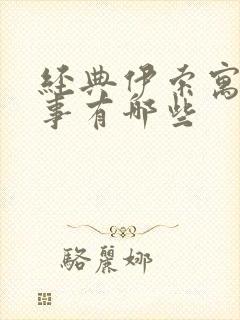 經典伊索寓
事有哪些
駱麗娜